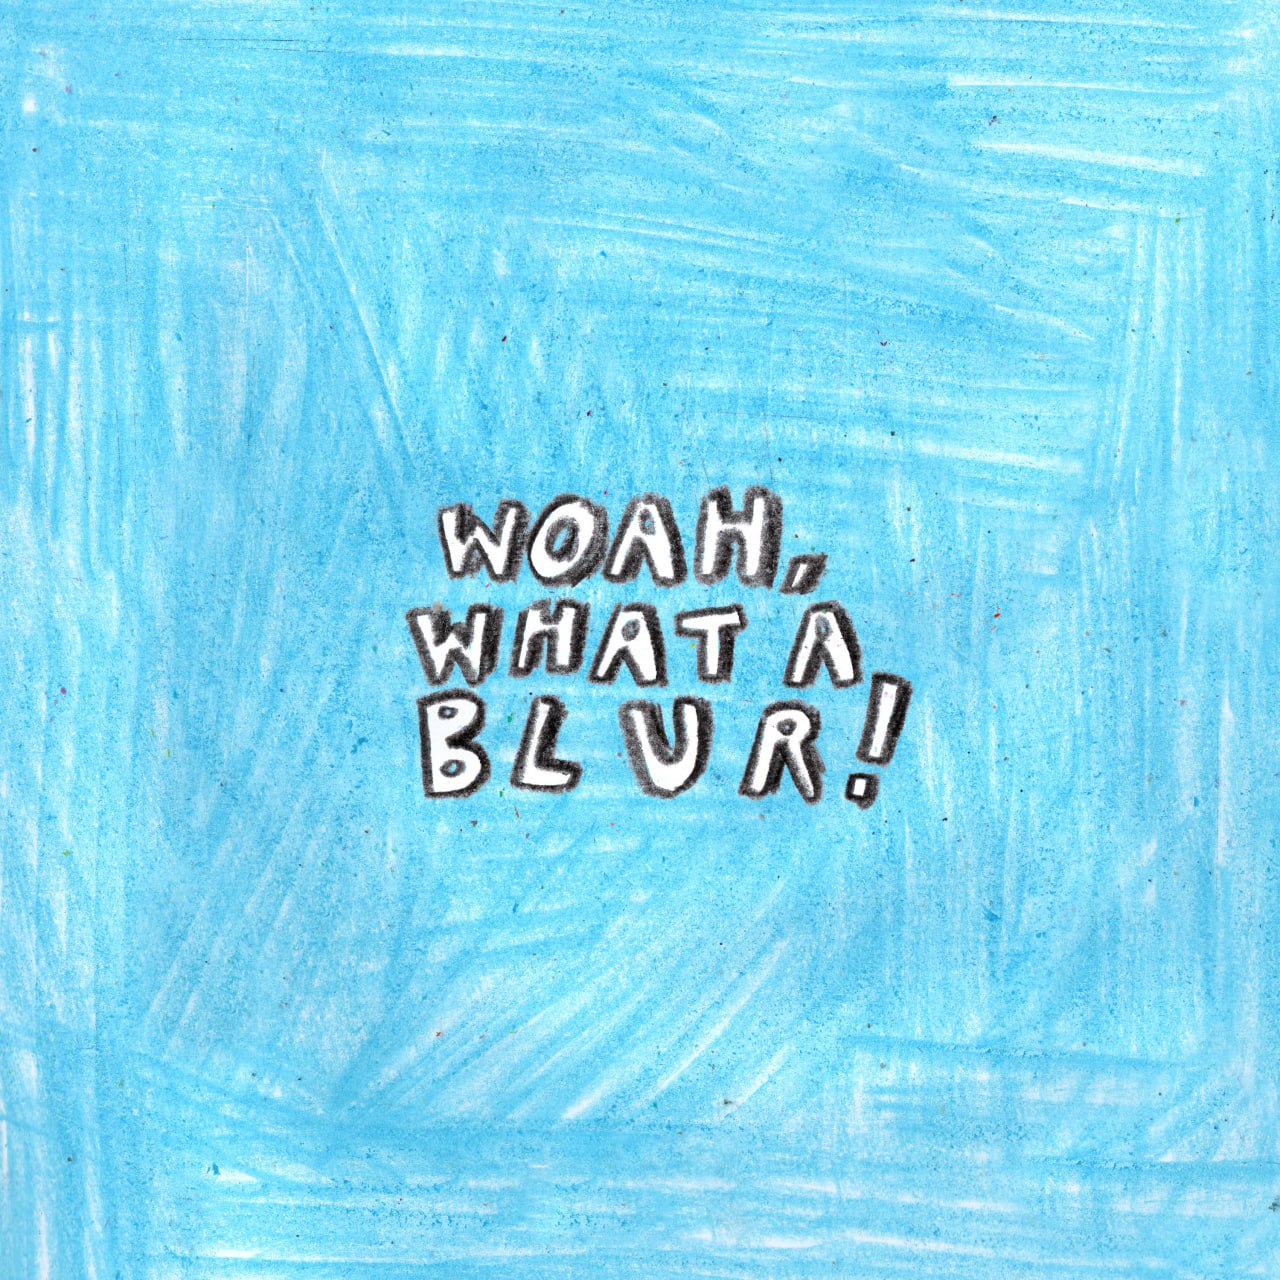 WOAH,
WHAT A
BLUR!